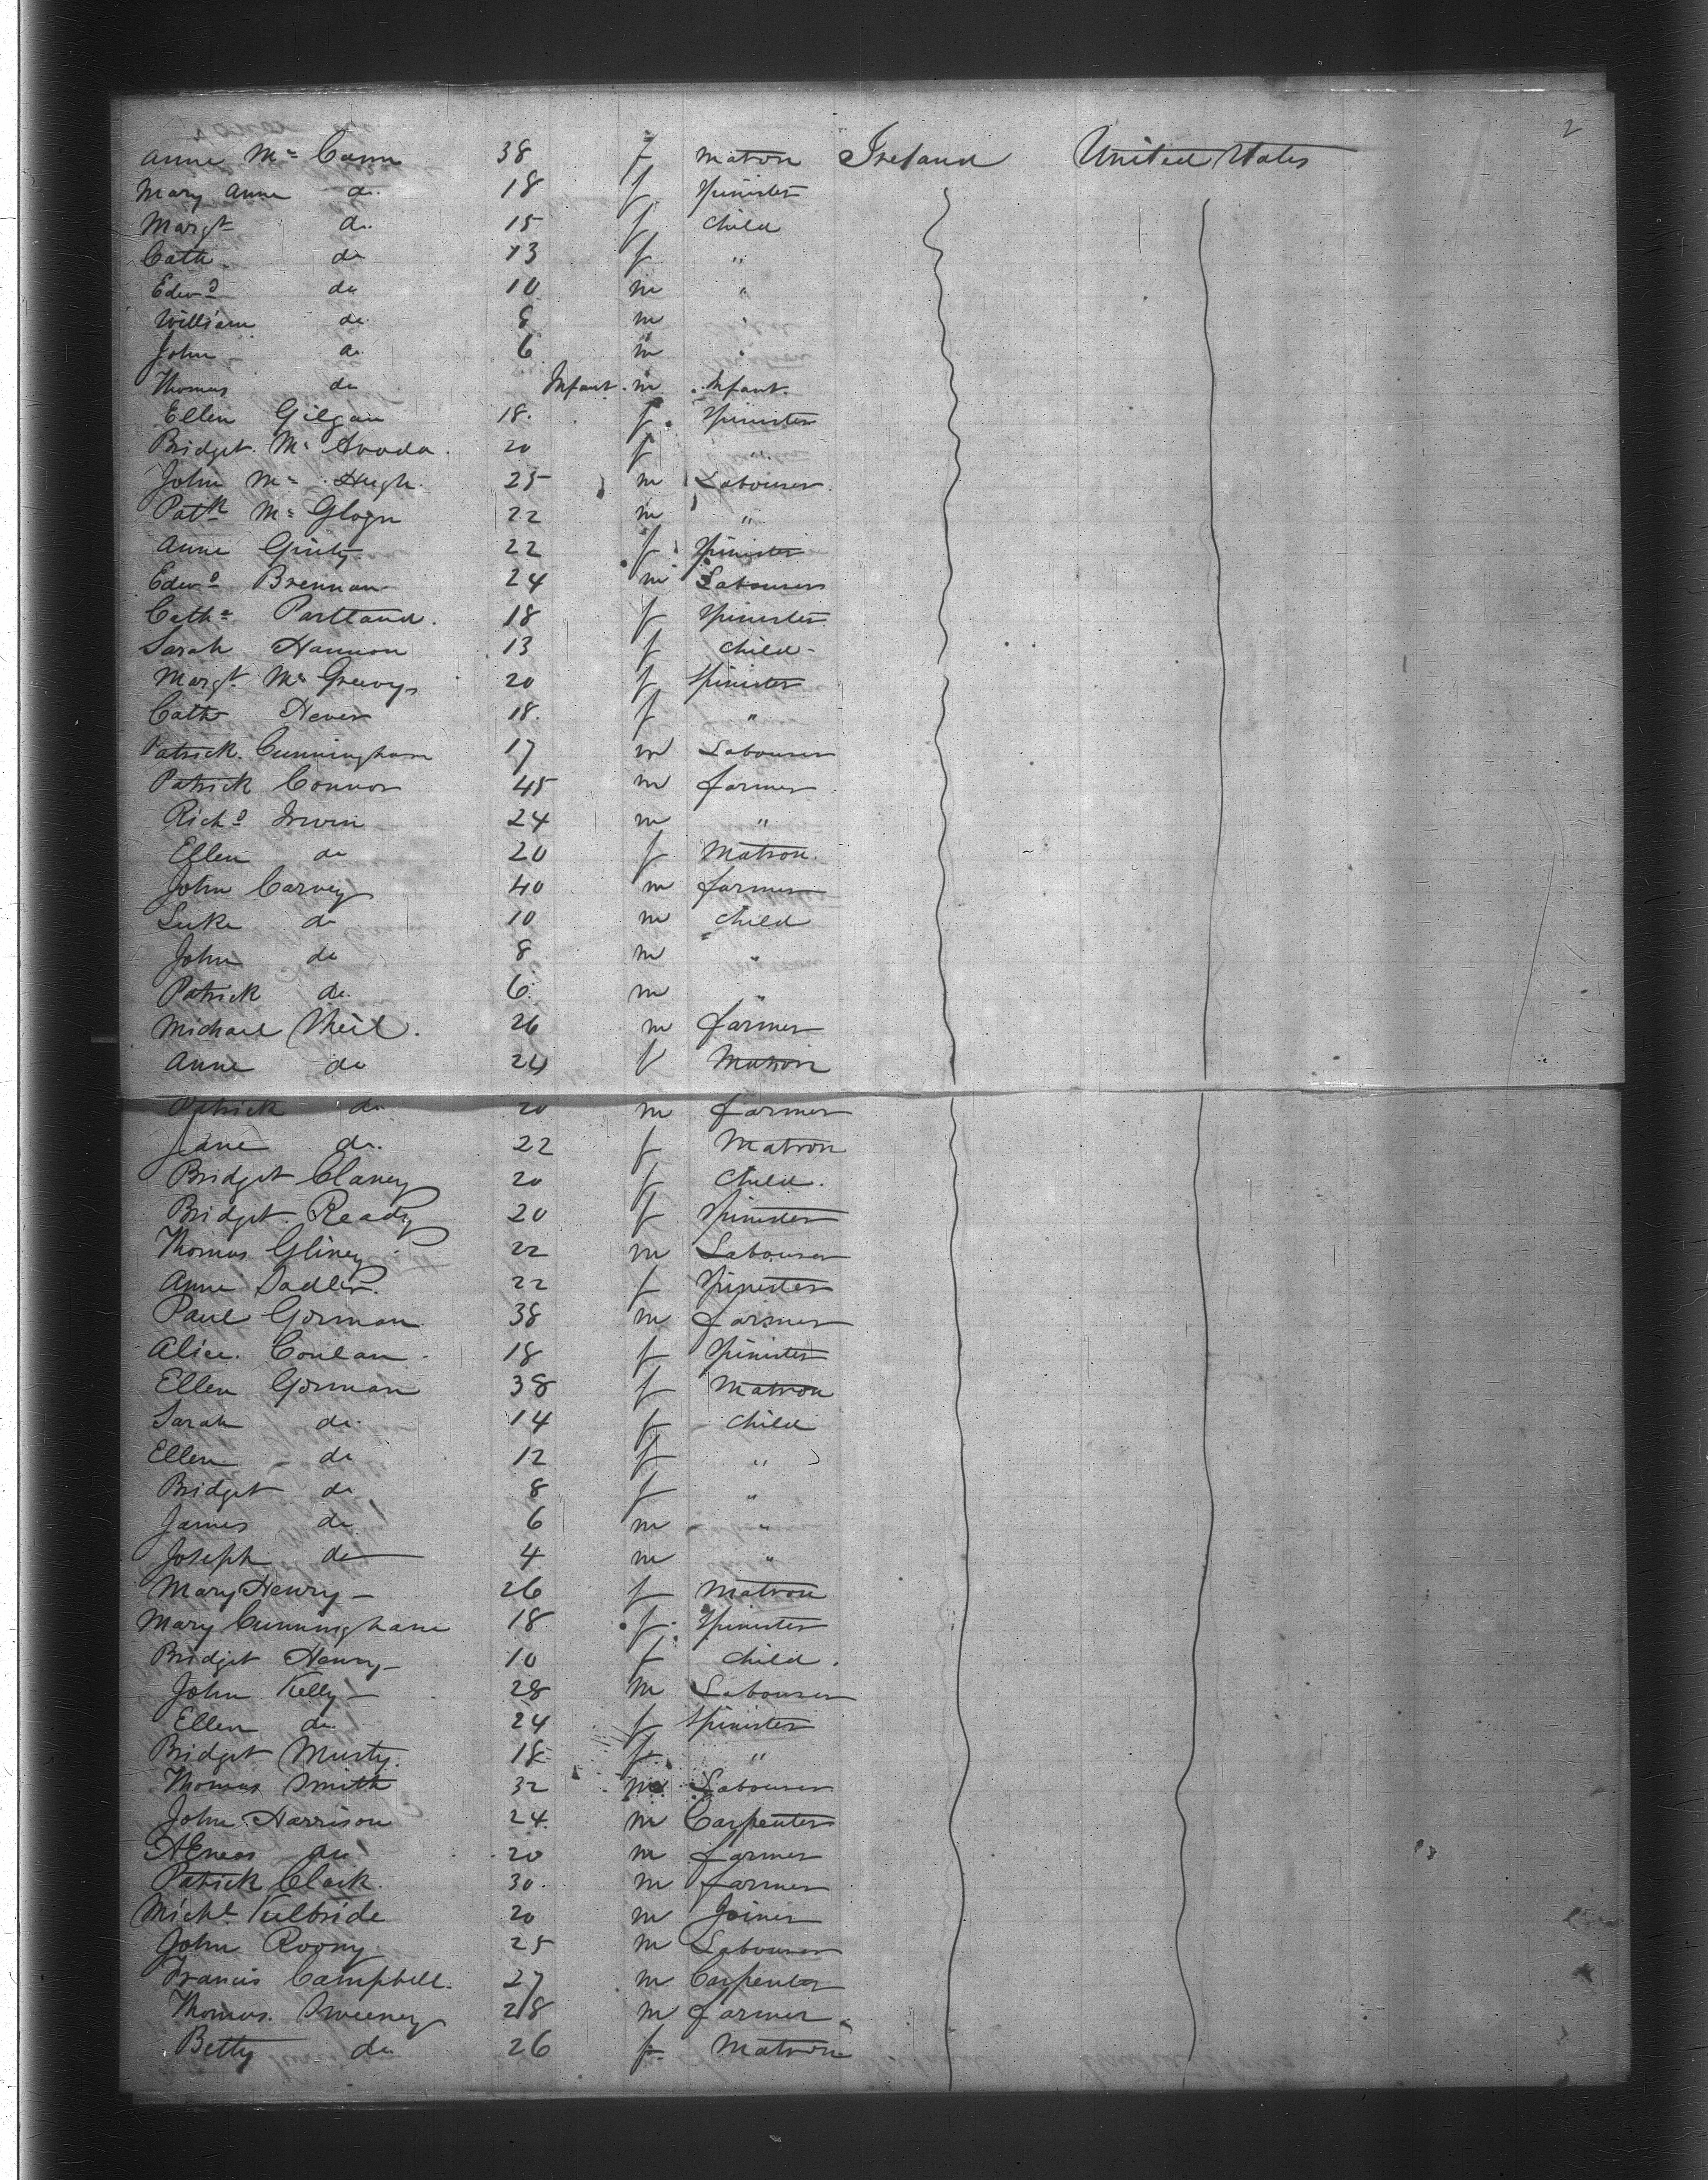 2
Anne Mc Cann 38 f Matron Ireland United States
Mary Anne do 18 f Spinster
Margt do 15 f Child
Cath do 13 f "
Edwd do 10 m "
William do 8 m "
John do 6 m "
Thomas do Infant m Infant
Ellen Gilgan 18 f Spinster
Bridget Mc 20 f "
John Mc Hugh 25 m Labourer
Patk Mc Gloyn 22 m "
Anne Ginty 22 f Spinster
Edwd Brennan 24 m Labourer
Cathe Partland 18 f Spinster
Sarah Hannon 13 f Child
Margt Mc Greevy 20 f Spinster
Cath Hever 18 f "
Patrick Cunningham 17 m Labourer
Patrick Connor 45 m farmer
Richd Irwin 24 m "
Ellen do 20 f Matron
John Carvey 40 m farmer
Luke do 10 m Child
John do 8 m "
Patrick do 6 m "
Michael Neil 26 m farmer
Anne do 24 f Matron
Patrick do 20 m farmer
Jane do 22 f Matron
Bridget Clancy 20 f Child
Bridget Ready 20 f Spinster
Thomas Gliney 22 m Labourer
Anne Sadler 22 f Spinster
Paul Gorman 38 m farmer
Alice Conlan 18 f Spinster
Ellen Gorman 38 f Matron
Sarah do 14 f Child
Ellen do 12 f "
Bridget do 8 f "
James do 6 m "
Joseph do 4 m "
Mary Henry 26 f Matron
Mary Cunninghane 18 f Spinster
Bridget Henry 10 f Child
John Kelly 28 m Labourer
Ellen do 24 f Spinster
Bridget Murty 18 f "
Thomas Smith 32 m Labourer
John Harrison 24 m Carpenter
AEneas do 20 m farmer
Patrick Clark 30 m farmer
Michl Kilbride 20 m Joiner
John Roony 25 m Labourer
Francis Campbell 27 m Carpenter
Thomas Sweeney 28 m farmer
Betty do 26 f Matron